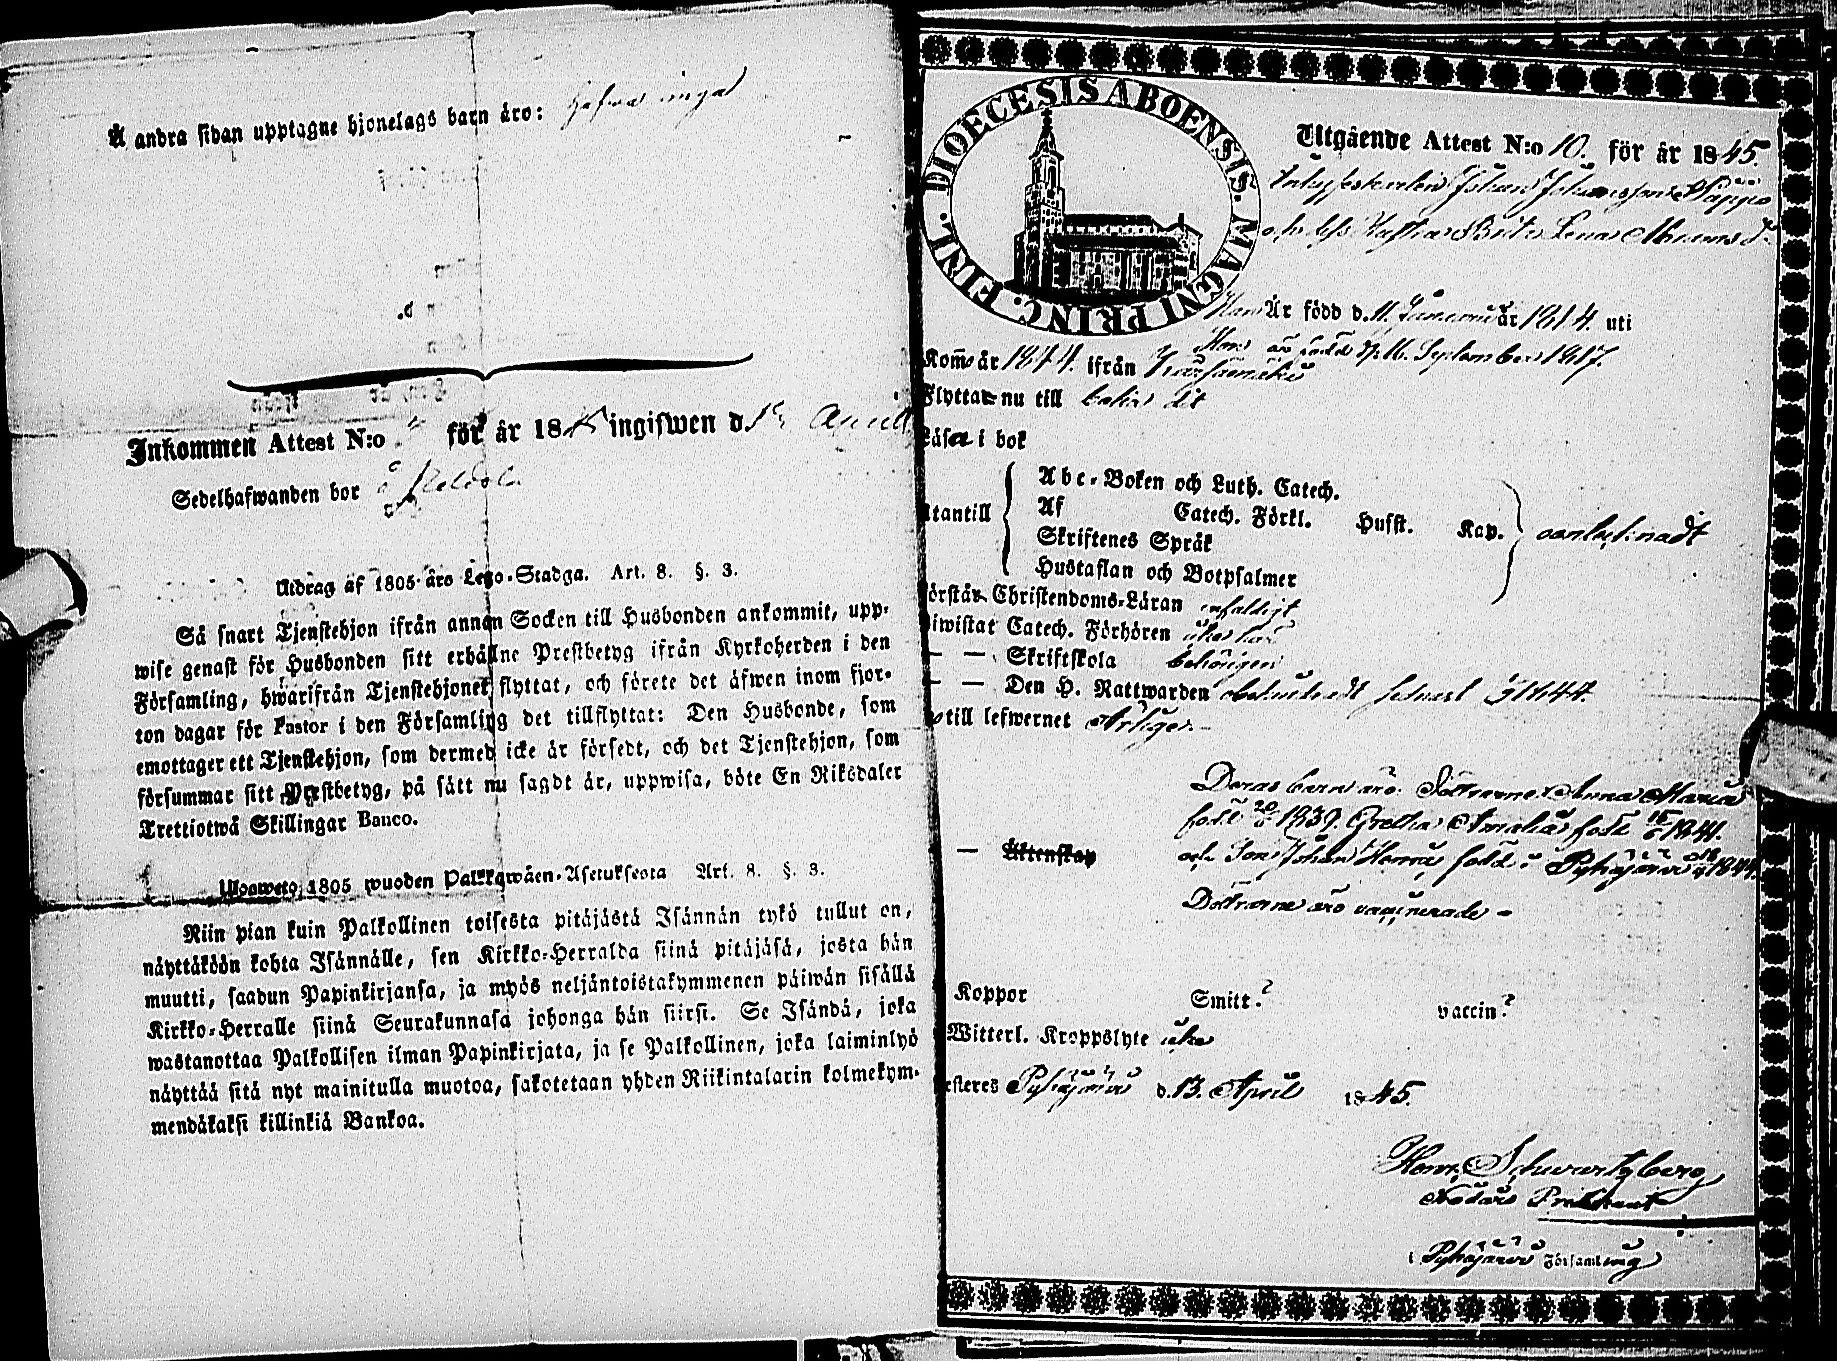 Å andra sidan upptagne hjonelags barn äro: hafwa inga
Inkommen Attest N:o för år 18 ingifwen d. April
Sedelhafwanden bor å
Utdrag af 1805 års Lego-Stadga. Art. 8. §. 3.
Så snart Tjenstehjon ifrån annan Socken till Husbonden ankommit, upp-
wise genast för Husbonden sitt erhållne Prestbetyg ifrån Kyrkoherden i den
Församling, hwarifrån Tjenstehjonet flyttat, och förete det äfwen inom fjor-
ton dagar för Pastor i den Församling det tillflyttat: Den Husbonde, som
emottager ett Tjenstehjon, som dermed icke är försedt, och det Tjenstehjon, som
försummar sitt Prestbetyg, på sätt nu sagdt är, uppwisa, böte En Riksdaler
Trettiotwå Skillingar Banco.
Ulosweto 1805 wuoden Palkkawäen-Asetuksesta Art. 8. §. 3.
Niin pian kuin Palkollinen toisesta pitäjästä Isännän tykö tullut on,
näyttäköön kohta Isännälle, sen Kirkko-Herralda siinä pitäjäsä, josta hän
muutti, saadun Papinkirjansa, ja myös neljäntoistakymmenen päiwän sisällä
Kirkko-Herralle siinä Seurakunnasa johonga hän siirsi. Se Isändä, joka
wastanottaa Palkollisen ilman Papinkirjata, ja se Palkollinen, joka laiminlyö
näyttää sitä nyt mainitulla muotoa, sakotetaan yhden Riikintalarin kolmekym-
mendäkaksi killinkiä Bankoa.
DIOECESIS ABOENSIS. MAGNI PRINC. FINL.
Utgående Attest N:o 10. för år 1845.
Johan Johansson
och dess Hustru Brita Lena
Han Är född d. 11. Januari år 1814. uti
Hon är född d. 16. September 1817.
Kom år 1844. ifrån
Flyttar nu till bakas dit
Läsa i bok
Utantill
Abc-Boken och Luth. Catech.
Af Catech. Förkl. Hufst. Kap.
Skriftenes Språk
Hustaflan och Botpsalmer
Förstår Christendoms-Läran enfaldigt
Biwistat Catech. Förhören
— — Skriftskola behörigen
— — Den H. Nattwarden senast 1844.
till lefwernet Ärliga
Deras barn äro: Döttrarne Anna Maria
född 1839. Gretha Amalia född 1841.
och Son Johan Henric född i Pyhäjärvi 1844.
— Äktenskap
Döttrarne äro vaccinerade –
Koppor Smitt.? vaccin?
Witterl. Kroppslyte icke
Pyhäjärvi d. 13. April 1845.
Henr. Schwartzberg
Predikant
i Pyhäjärvi Församling